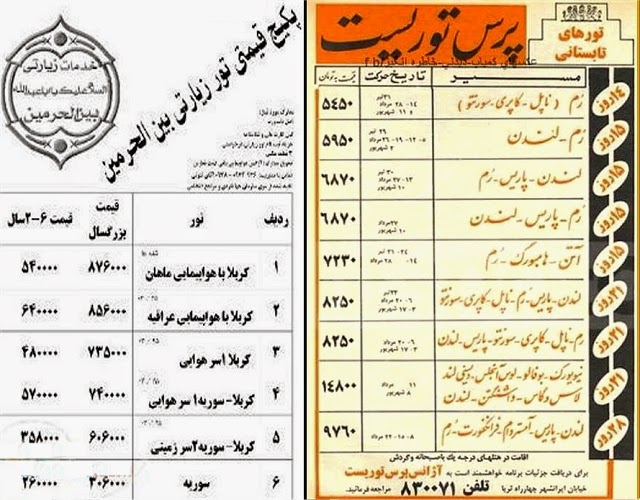 پکیج قیمتی تور زیارتی بین الحرمین
خدمات زیارتی
السلام علیک یا اباعبدالله
بین الحرمین
ردیف تور قیمت بزرگسال قیمت ۶-۲سال
۱ کربلا با هواپیمایی ماهان ۸۷۶۰۰۰ ۵۴۰۰۰۰
۲ کربلا با هواپیمایی عراقیه ۸۵۶۰۰۰ ۶۴۰۰۰۰
۳ کربلا ۱سر هوایی ۷۳۵۰۰۰ ۴۸۰۰۰۰
۴ کربلا-سوریه ۱سر هوایی ۷۴۰۰۰۰ ۵۷۰۰۰۰
۵ کربلا-سوریه ۲سر زمینی ۶۰۶۰۰۰ ۳۵۸۰۰۰
۶ سوریه ۳۰۶۰۰۰ ۲۶۰۰۰۰
تورهای تابستانی
پرس توریست
عکسهای کمیاب،دیدنی-خاطره انگیز
مسیر تاریخ حرکت قیمت به تومان
۱۴روز رم (ناپل-کاپری-سورنتو) ۵۴۵۰
۱۵روز رم-لندن ۵۹۵۰
۱۵روز لندن-پاریس-رم ۶۸۷۰
۱۵روز رم-پاریس-لندن ۶۸۷۰
۱۵روز آتن-هامبورگ-رم ۷۲۳۰
۲۱روز لندن-پاریس-رم-ناپل-کاپری-سورنتو ۸۲۵۰
۲۱روز رم-ناپل-کاپری-سورنتو-پاریس-لندن ۸۲۵۰
۲۱روز نیویورک-بوفالو-لوس آنجلس-دیسنی لند
لاس وگاس-واشنگتن-لندن ۱۴۸۰۰
۲۸روز لندن-پاریس-آمستردام-فرانکفورت-رم ۹۷۶۰
اقامت در هتلهای درجه یک باصبحانه و گردش
برای دریافت جزئیات برنامه خواهشمند است به آژانس پرس توریست
خیابان ایرانشهر چهارراه ثریا تلفن ۸۳۰۰۷۱ مراجعه فرمائید.